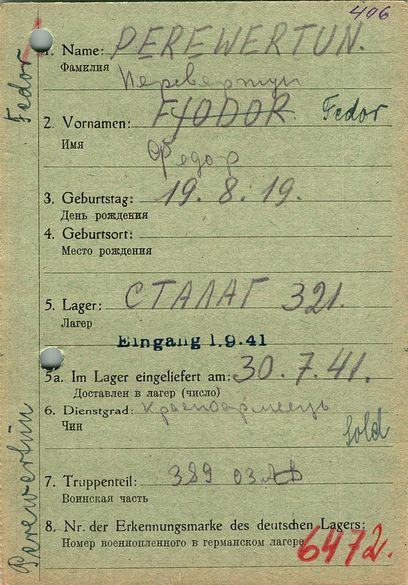 496
1. Name: PEREWERTUN.
Фамилия Перевертун
2. Vornamen: FJODOR Fedor
Имя Федор
3. Geburtstag: 19. 8. 19.
День рождения
4. Geburtsort:
Место рождения
5. Lager: СТАЛАГ 321.
Лагер
Eingang 1.9.41
5a. Im Lager eingeliefert am: 30. 7. 41.
Доставлен в лагер (число)
6. Dienstgrad: Красноармеець
Чин
Sold
7. Truppenteil: 389
Воинская часть
8. Nr. der Erkennungsmarke des deutschen Lagers:
Номер военнопленного в германском лагере 6472.
Fedor
Perewertun